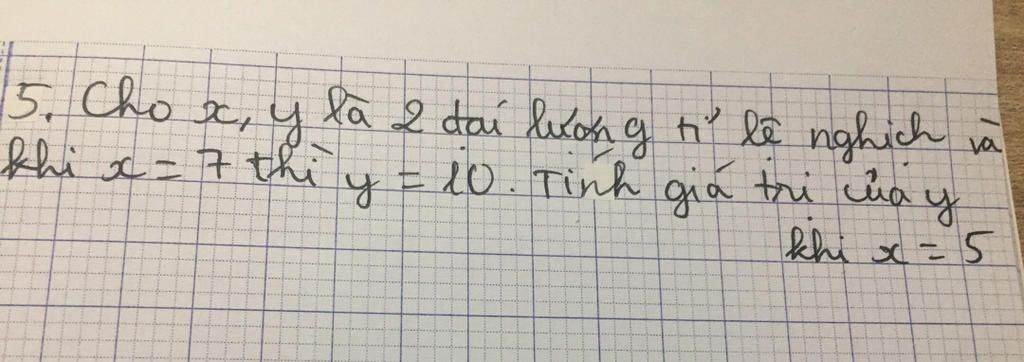 5. Cho x, y là 2 đại lượng tỉ lệ nghịch và
khi x = 7 thì y = 10. Tính giá trị của y
khi x = 5